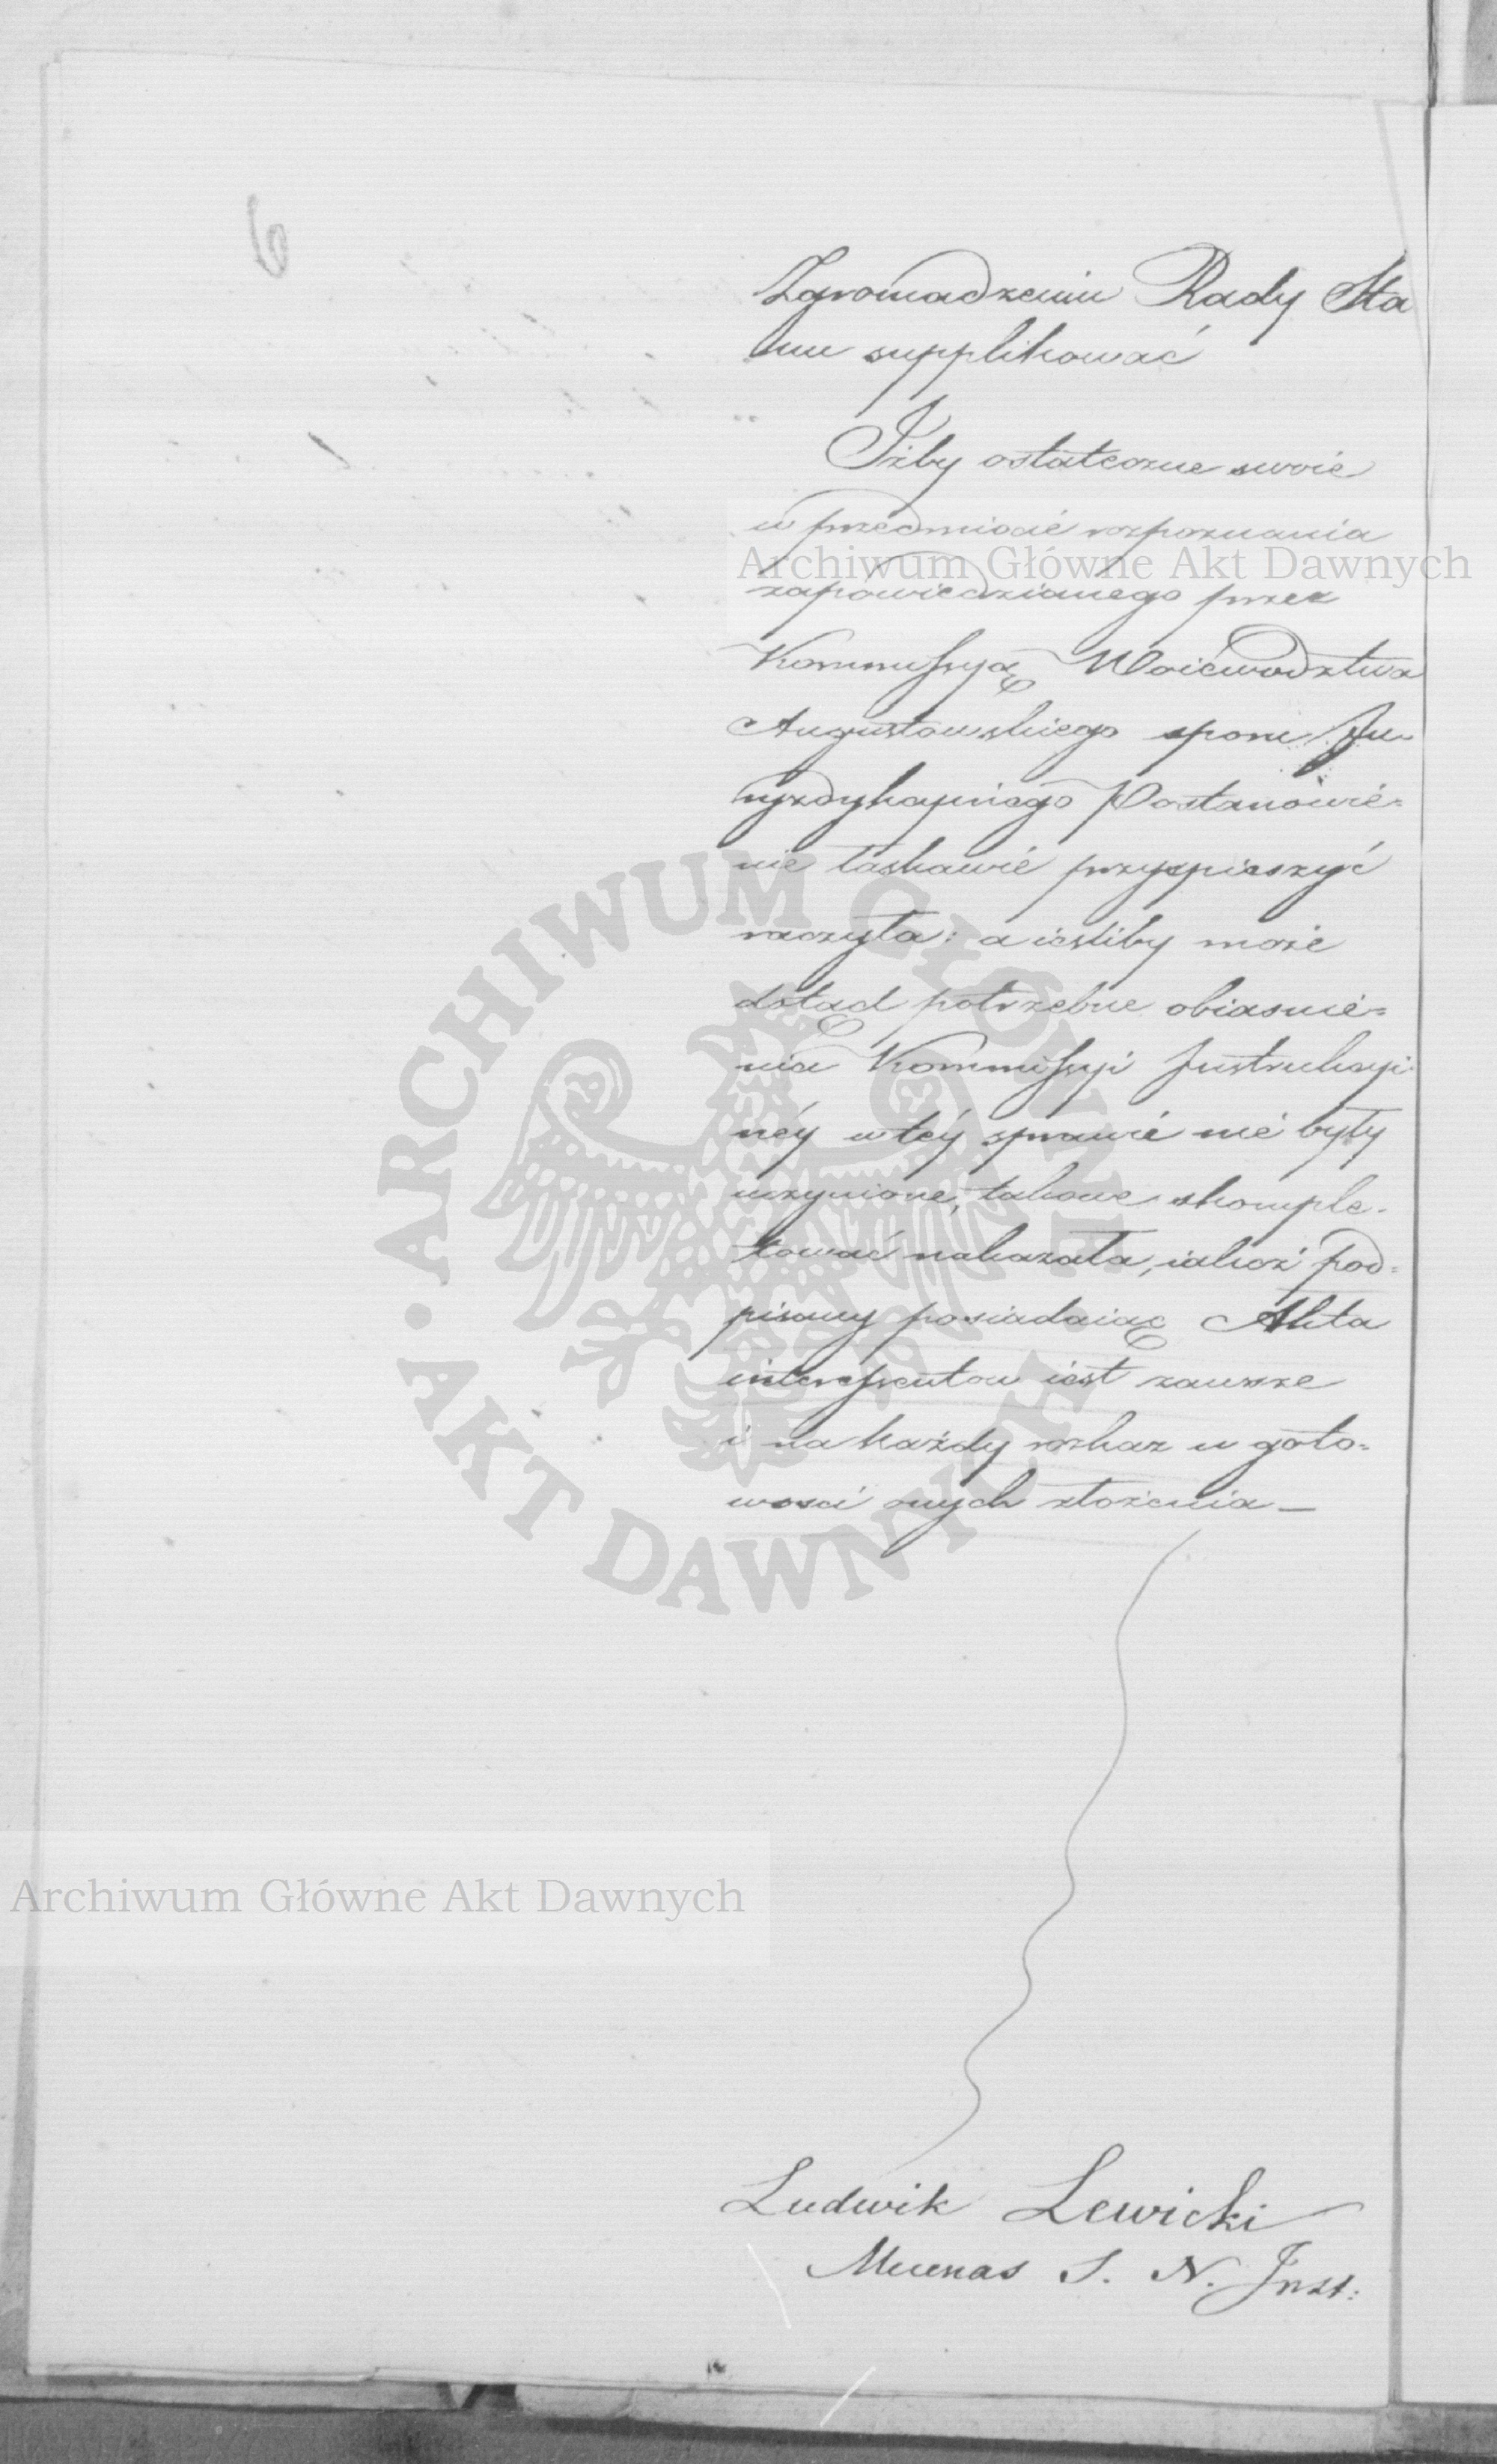 6
Zgromadzeniu Rady Sta
nu supplikować
Iżby ostateczne swoie
w przedmiocie rozpoznania
zapowiedzianego przez
Kommissyą Woiewodztwa
Augustowskiego sporu Ju-
ryzdykcyinego Postanowie=
nie łaskawie przyspieszyć
raczyła: a ieśliby może
dotąd potrzebne obiasnie=
nia Kommissyi Instrukcyi
néy w téy sprawie nie były
uczynione, takowe skomple-
tować nakazała, iakoż pod=
pisany posiadaiąc Akta
interessentow iest zawsze
i na każdy rozkaz w goto=
wosci onych złożenia —
Ludwik Lewicki
Mecenas S. N. Inst:
Archiwum Główne Akt Dawnych
Archiwum Główne Akt Dawnych
ARCHIWUM GŁÓWNE AKT DAWNYCH